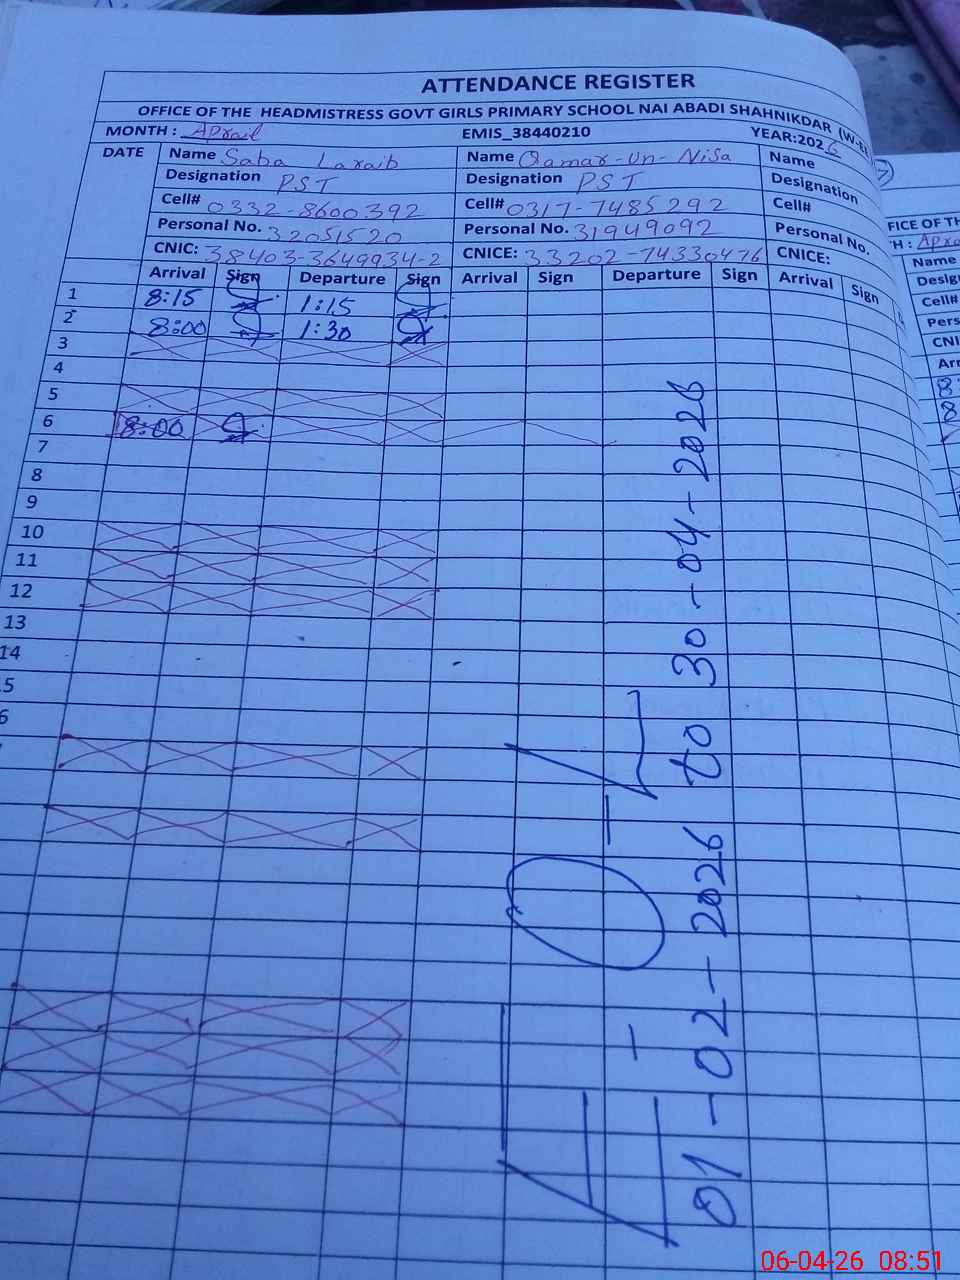 ATTENDANCE REGISTER
OFFICE OF THE HEADMISTRESS GOVT GIRLS PRIMARY SCHOOL NAI ABADI SHAHNIKDAR (W-E
MONTH : Aprail EMIS_38440210 YEAR:2026
DATE Name Saba Laraib Name Qamar-un-Nisa Name
Designation PST Designation PST Designation
Cell# 0332-8600392 Cell# 0317-7485292 Cell#
Personal No. 32051520 Personal No. 31949092 Personal No.
CNIC: 38403-3649934-2 CNICE: 33202-74330476 CNICE:
Arrival Sign Departure Sign Arrival Sign Departure Sign Arrival Sign
1 8:15 1:15
2 8:00 1:30
3
4
5
6 8:00
7
8
9
10
11
12
13
14
.5
6
01-02-2026 to 30-04-2026
FICE OF TH
H : Apra
Name
Desig
Cell#
Pers
CNI
Arr
8
8
06-04-26 08:51